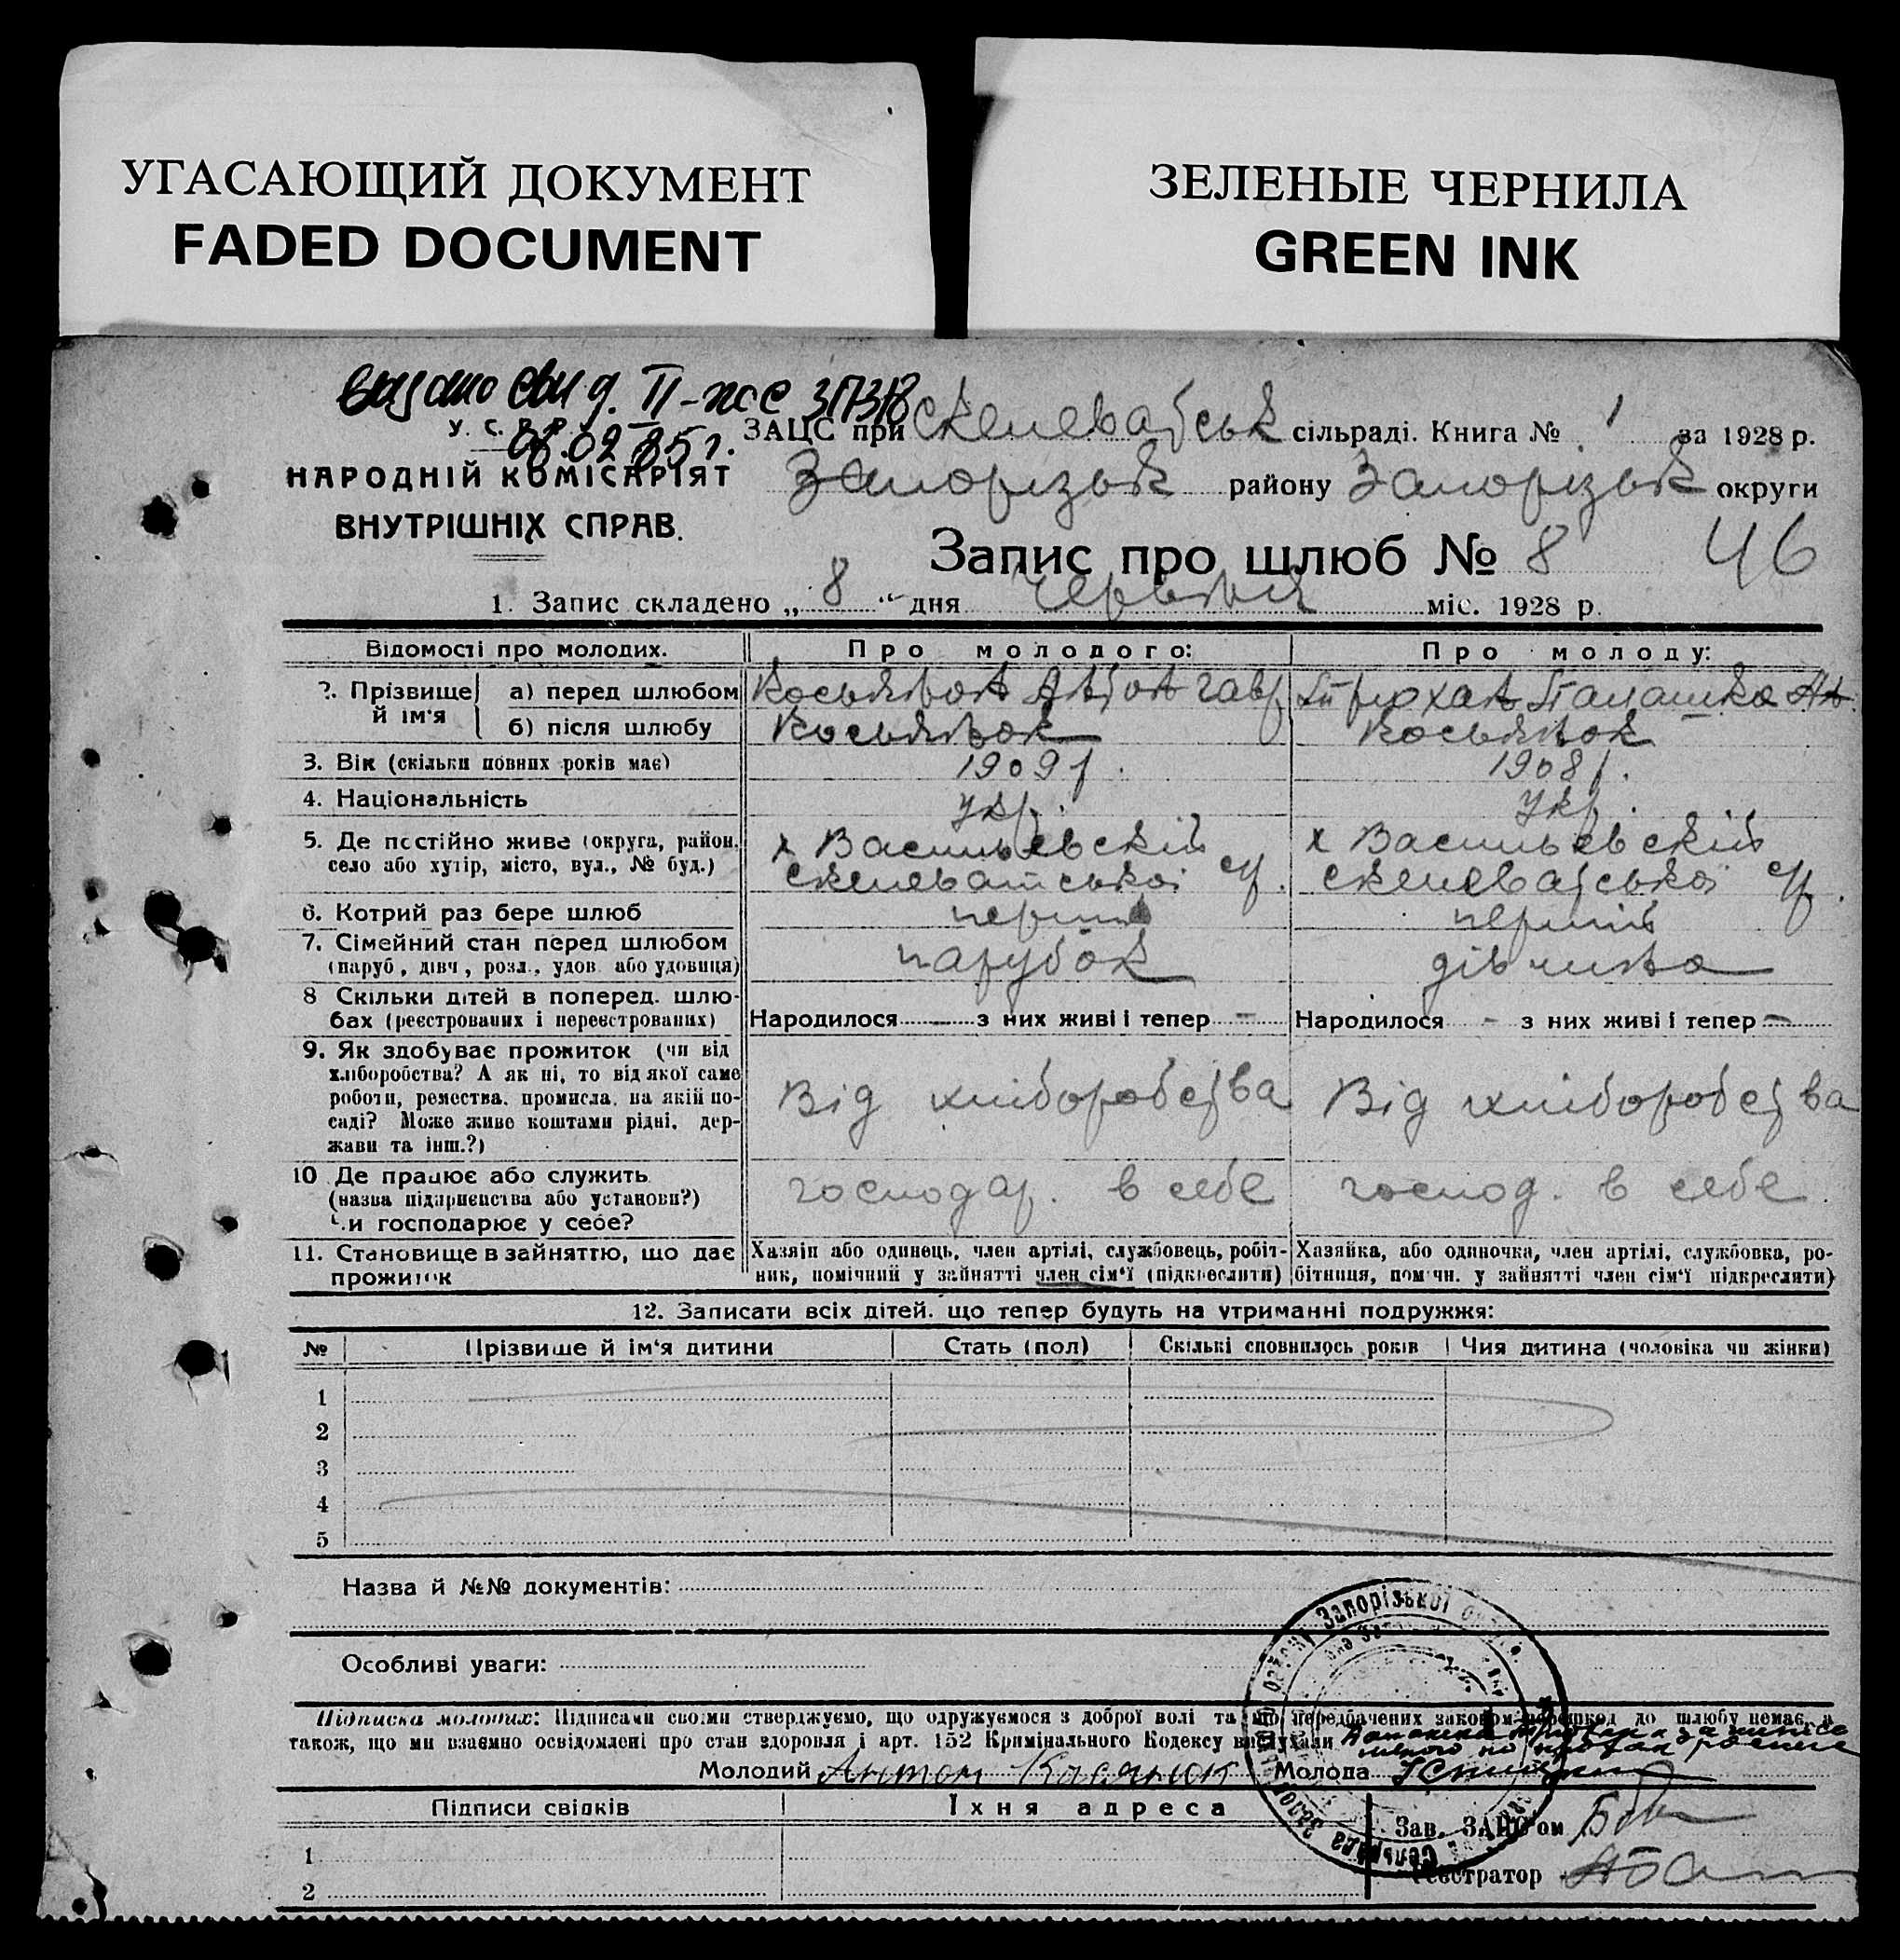 УГАСАЮЩИЙ ДОКУМЕНТ
FADED DOCUMENT
ЗЕЛЕНЫЕ ЧЕРНИЛА
GREEN INK
видано свид. II-
08.02.85 г.
У. С. Р. Р.
НАРОДНІЙ КОМІСАРІЯТ
ВНУТРІШНІХ СПРАВ.
ЗАЦС при Скелеватськ сільраді. Книга № 1 за 1928 р.
Запорізьк району Запорізьк округи
Запис про шлюб № 8 46
1. Запис складено „ 8 “ дня червня міс. 1928 р.
Відомості про молодих. Про молодого: Про молоду:
2. Прізвище й ім'я а) перед шлюбом Косьянок Антон Гавр Трюхан Палашка Ан.
б) після шлюбу Косьянок Косьянок
3. Вік (скільки повних років має) 1909 р. 1908 р.
4. Національність Укр. Укр.
5. Де постійно живе (округа, район, х Васильевский х Васильевский
село або хутір, місто, вул., № буд.) Скелеватської с/р. Скелеватської с/р.
6. Котрий раз бере шлюб перший перший
7. Сімейний стан перед шлюбом парубок дівчина
(паруб, дівч, розл., удов. або удовиця)
8 Скільки дітей в поперед. шлю-
бах (реєстрованих і нереєстрованих) Народилося — з них живі і тепер — Народилося - з них живі і тепер —
9. Як здобуває прожиток (чи від
хліборобства? А як ні, то від якої саме
роботи, ремества, промисла, на якій по-
саді? Може живе коштами рідні, дер-
жави та інш.?)
Від хліборобства Від хліборобства
10 Де працює або служить
(назва підприємства або установи?)
Чи господарює у себе?
господар. в себе господ. в себе
11. Становище в зайняттю, що дає
прожиток
Хазяін або одинець, член артілі, службовець, робіт-
ник, помічний у зайнятті член сім'ї (підкреслити)
Хазяйка, або одиночка, член артілі, службовка, ро-
бітниця, пом чн. у зайнятті член сім'ї підкреслити)
12. Записати всіх дітей. що тепер будуть на утриманні подружжя:
№ Прізвище й ім'я дитини Стать (пол) Скількі сповнилось років Чия дитина (чоловіка чи жінки)
1
2
3
4
5
Назва й №№ документів:
Особливі уваги:
Підписка молодих: Підписами своіми стверджуємо, що одружуємося з доброї волі та що передбачених законом перешкод до шлюбу немає, а
також, що ми взаємно освідомлені про стан здоровля і арт. 152 Кримінального Кодексу вислухали
Молодий Антон Касянюк Молода
Підписи свідків Їхня адреса
Зав. ЗАЦС'ом
1
2
Реєстратор
Запорізької
Сельрада